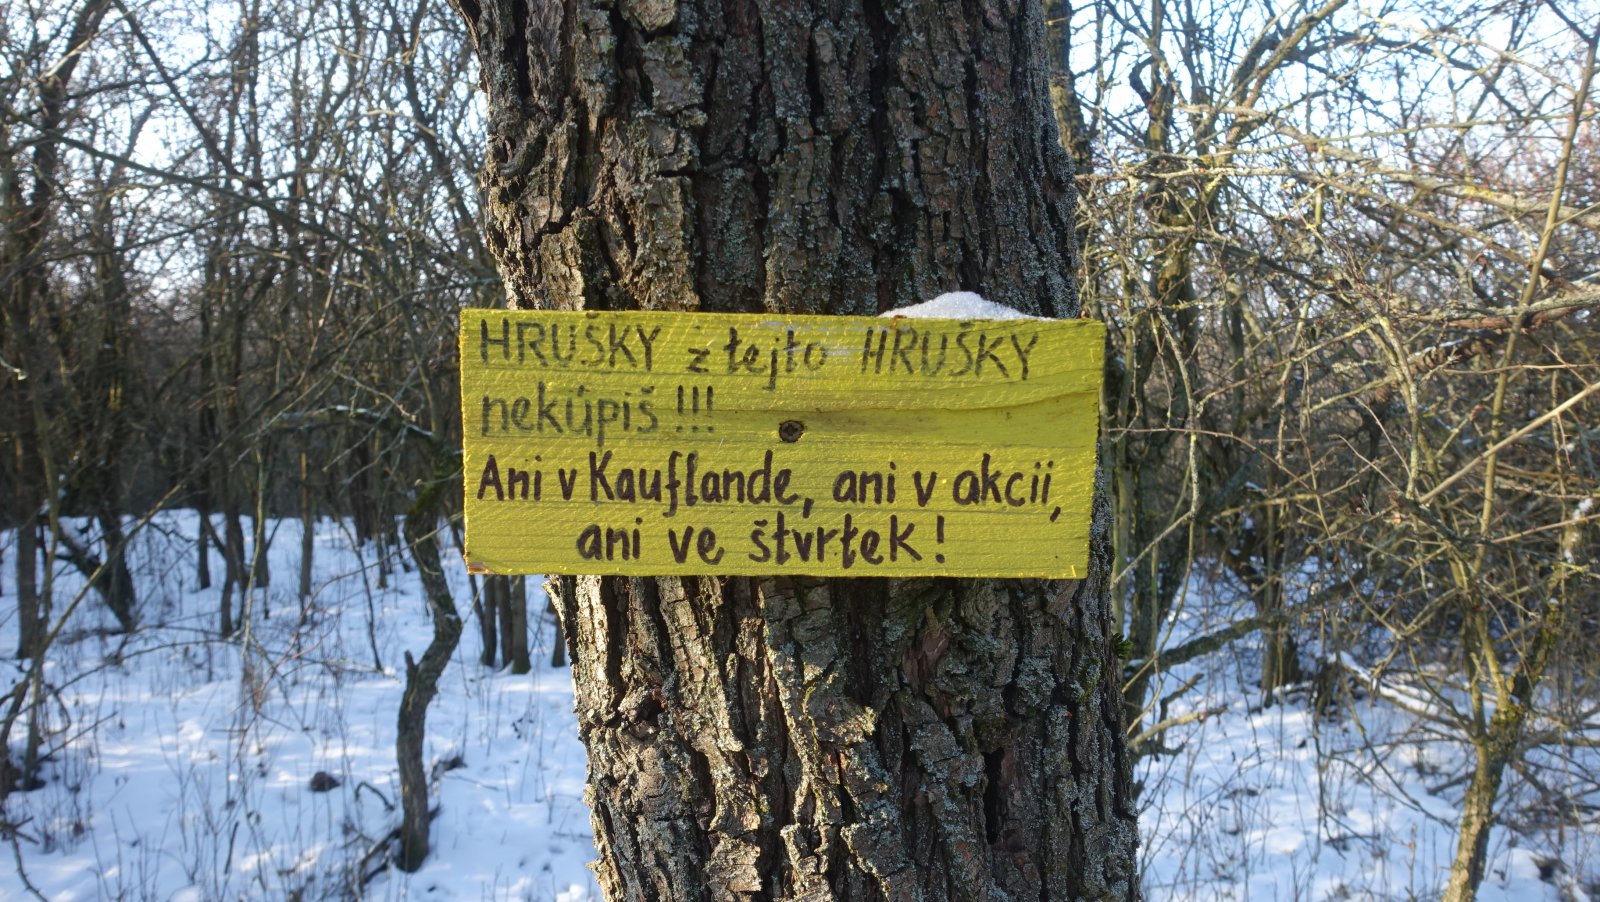 HRUŠKY z tejto HRUŠKY
nekúpiš !!!
Ani v Kauflande, ani v akcii,
ani ve štvrtek!